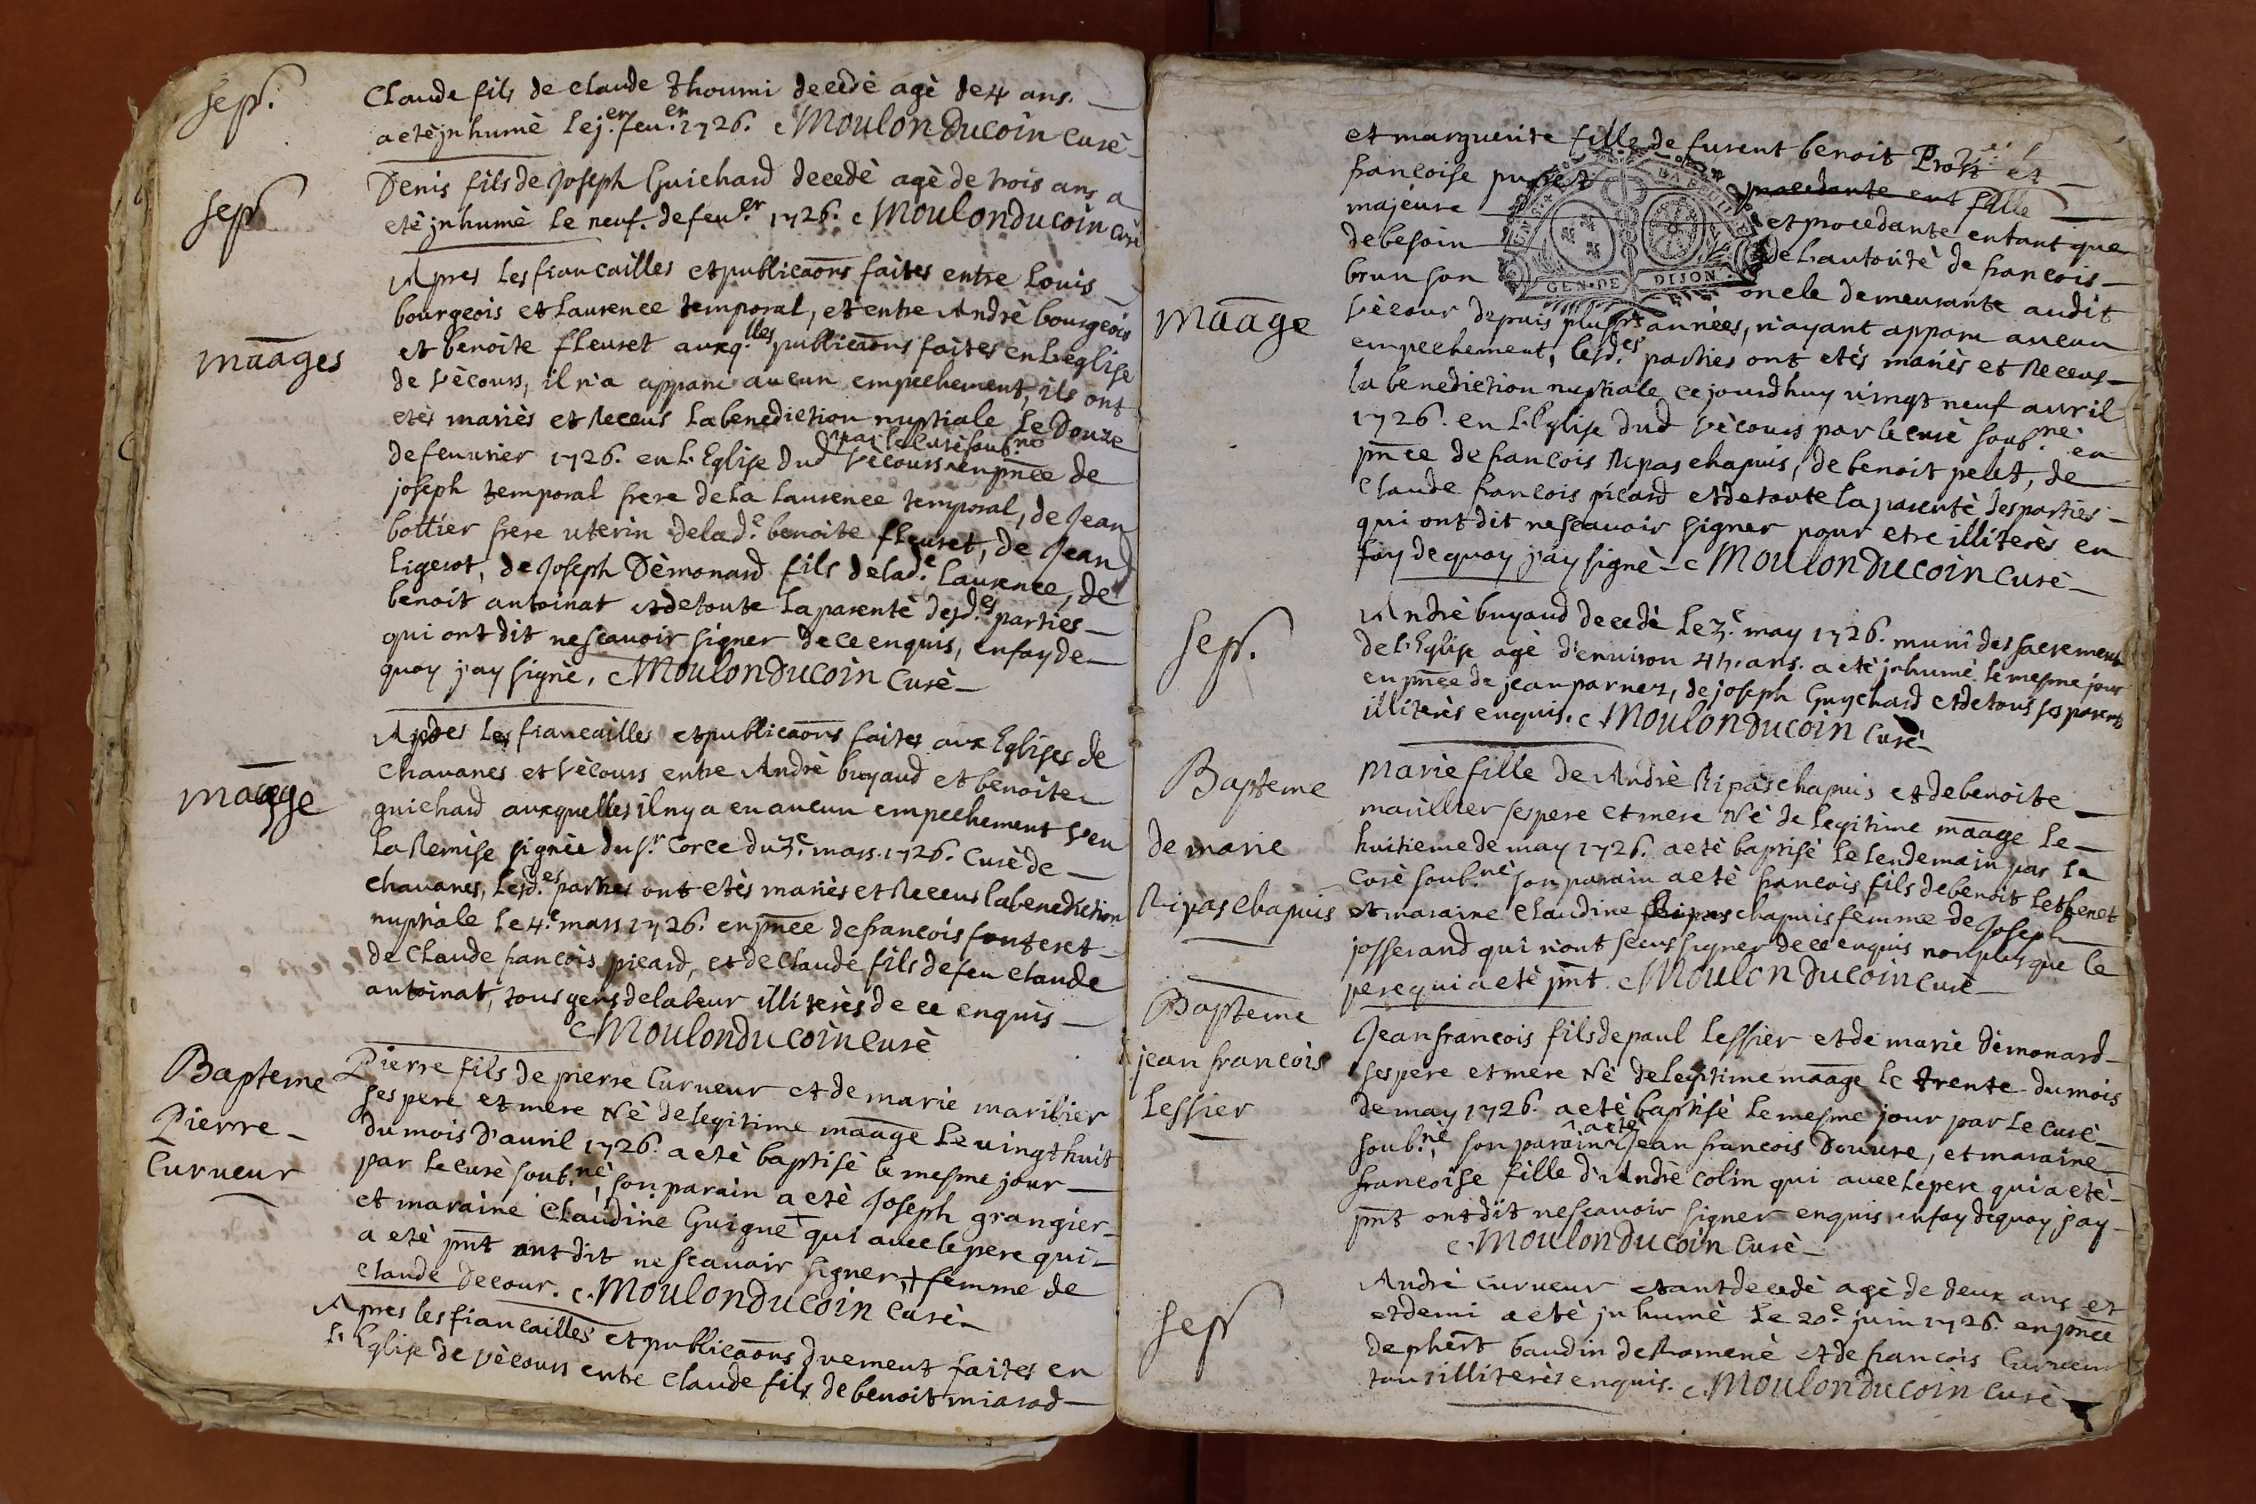 sep.
Claude fils de claude thoumi decedè agè de 4 ans.
a etè jnhumè le j.er feu.er 1726. Moulonducoin curè
sep
Denis fils de Joseph Guichard decedè agè de trois ans a
etè jnhumè le neuf. de feu.er 1726. Moulonducoin curè
maages
Apres les fiancailles et publicaons faites entre Louis
bourgeois et Laurence temporal, et entre Andrè bourgeois
et benoite fleuret auxq.lles publicaons faites en L'eglise
de vècours, il n'a apparu aucun empechement, ils ont
etès mariès et Receus la benediction nuptiale le Douze
par le curè soub.né
de feuurier 1726. en L'Eglise dud vècours en pnce de
joseph temporal frere de la Laurence temporal, de Jean
bottier frere uterin de lad.e benoite fleuret, de Jean
Ligerot, de Joseph Dèmonard fils de lad.e Laurence, de
benoit antoinat et de toute la parentè desd.es parties
qui ont dit ne scauoir signer de ce enquis, en foy de
quoy j'ay signè. Moulonducoin curè
maage
Apres les fiancailles et publicaons faites aux Eglises de
chauanes et vècours entre Andrè buyaud et benoite
guichard auxquelles il ny a eu aucun empechement veu
la Remise signèe du s.r Corce du 3.e mars 1726. curè de
chauanes, lesd.es parties ont etès mariès et Receus la benediction
nuptiale le 4.e mars 1726. en pnce de francois fonteret
de Claude francois picard, et de Claude fils de feu claude
antoinat, tous gens de labeur illiterès de ce enquis
Moulonducoin curè
Bapteme
Pierre
Curueur
Pierre fils de pierre Curueur et de marie marilier
ses pere et mere Nè de legitime maage le vingt huit
du mois D'auril 1726. a etè baptisè le mesme jour
par le curè soub.nè, son parain a etè Joseph grangier
et maraine Claudine Guigne + qui auec le pere qui
a etè pnt ont dit ne scauoir signer, + femme de
claude Decour. Moulonducoin curè
Apres les fiancailles et publicaons duement faites en
L'Eglise de vècours entre Claude fils de benoit miarod
maage
et marguerite fille de furent benoit Prost et
francoise procedante ent fille
majeure et procedante entant que
de besoin de l'autorité de francois
brun son oncle demeurante audit
vècour depuis plus.rs annèes, n'ayant apparu aucun
empechement, lesd.es parties ont etès mariès et Receus
la benediction nuptiale ce jourdhuy vingt neuf auril
1726. en L'Eglise dud vècours par le curè soub.né. en
pnce de francois Ripaschapuis, de benoit pelut, de
claude francois picard et de toute la parentè des parties
qui ont dit ne scauoir signer pour etre illiterès en
foy de quoy j'ay signè Moulonducoin curè
sep.
Andrè buyaud decedè le 3.e may 1726. muni des sacrements
de L'Eglise agè d'enuiron 45. ans. a etè jnhumè le mesme jour
en pnce de jean parnez, de joseph Guychard et de tous ses parents
illiterès enquis. Moulonducoin curè
Bapteme
de marie
Ripaschapuis
marie fille de Andrè Ripaschapuis et de benoite
marillier ses pere et mere Nè de legitime maage le
huitieme de may 1726. a etè baptisè le lendemain par le
curè soub.nè son parain a etè francois fils de benoit lethenet
et maraine Claudine Ripaschapuis femme de Joseph
josserand qui n'ont sceus signer de ce enquis non plus que le
pere qui a etè pnt Moulonducoin curè
Bapteme
jean francois
Lessier
Jean francois fils de paul Lessier et de marie Dèmonard
ses pere et mere Nè de legitime maage le trente du mois
de may 1726. a etè baptisè le mesme jour par le curè
a etè
soub.nè, son parain jean francois Douure, et maraine
francoise fille d'Andrè Colin qui auec le pere qui a etè
pnt ont dit ne scauoir signer enquis en foy dequoy j'ay
Moulonducoin curè
sep
Andrè Curueur etant decedè agè de deux ans et
et demi a etè jnhumè le 20.e juin 1726. en pnce
de phert baudin de Romenè et de francois Curueur
tous illiterès enquis. Moulonducoin curè
GEN·DE DIJON